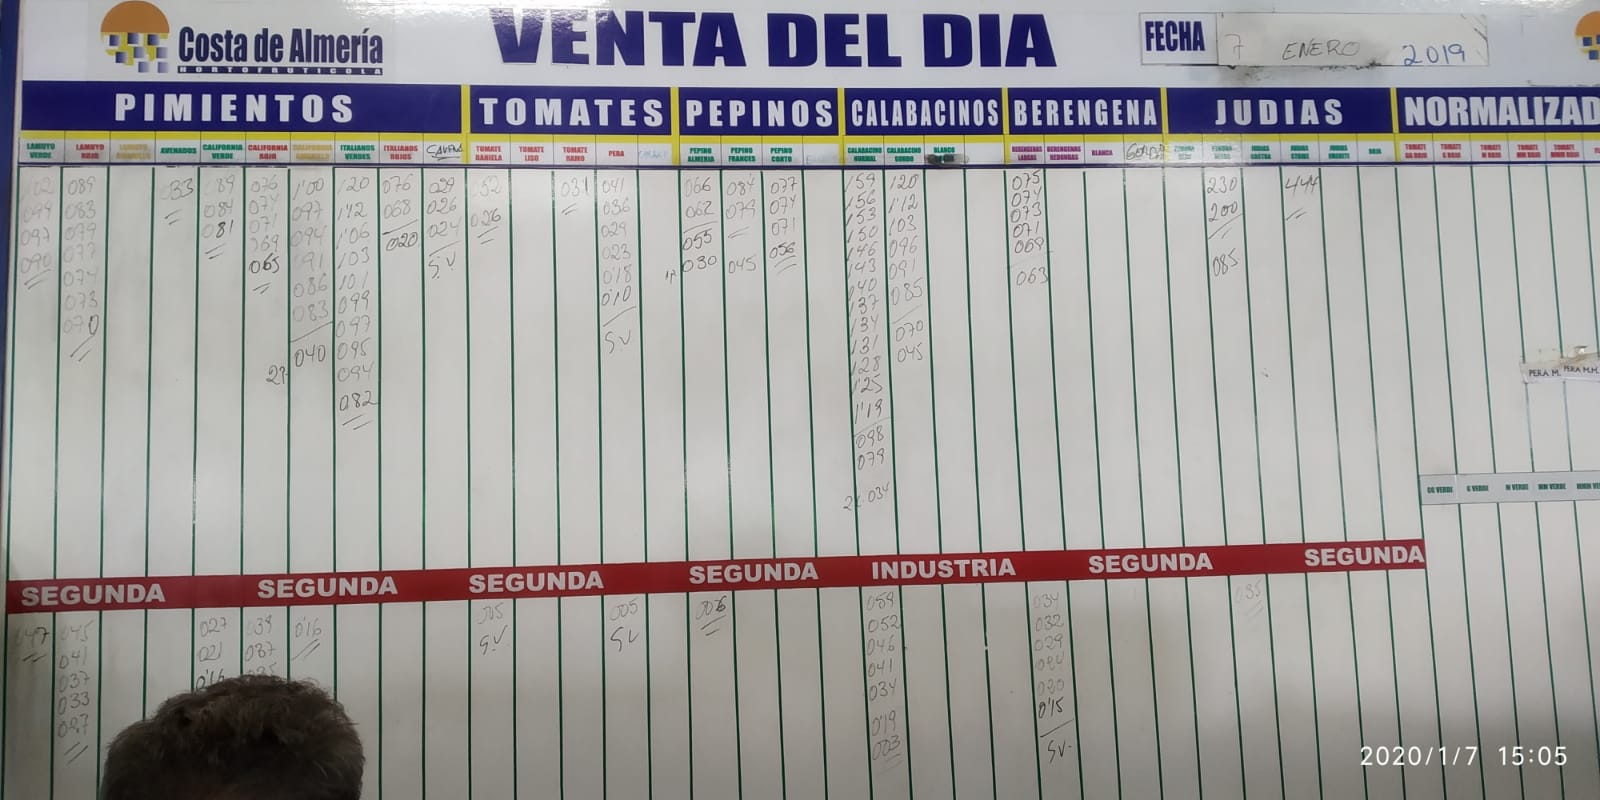 Costa de Almería
HORTOFRUTICOLA
VENTA DEL DIA
FECHA 7 ENERO 2019
PIMIENTOS TOMATES PEPINOS CALABACINOS BERENGENA JUDIAS NORMALIZAD
LAMUYO VERDE LAMUYO ROJO LAMUYO AMARILLO AVENADOS CALIFORNIA VERDE CALIFORNIA ROJO CALIFORNIA AMARILLO ITALIANOS VERDES ITALIANOS ROJOS TOMATE DANIELA TOMATE LISO TOMATE RAMO PERA PEPINO ALMERIA PEPINO FRANCES PEPINO CORTO CALABACINO NORMAL CALABACINO GORDO BLANCO BERENGENAS LARGAS BERENGENAS REDONDAS BLANCA ROJA TOMATE GG ROJO TOMATE G ROJO TOMATE M ROJO TOMATE MM ROJO TOMATE MMM ROJO
102 089 033 089 076 1'00 120 076 029 052 031 041 066 084 077 159 120 075 230 444
099 083 084 074 097 1'12 068 026 026 036 062 079 074 156 1'12 074 200
097 079 081 071 094 1'06 020 024 029 055 045 071 153 103 073 085
090 077 069 091 103 S.V 023 030 056 150 096 071
074 065 086 101 0'18 146 091 069
073 083 099 010 143 085 063
070 040 097 S.V 140 070
095 137 045
094 134
082 131
128
1'25
1'19
098
079
034
PERA M. PERA M.M.
GG VERDE G VERDE M VERDE MM VERDE
SEGUNDA SEGUNDA SEGUNDA SEGUNDA INDUSTRIA SEGUNDA SEGUNDA
047 045 027 039 0'16 005 005 006 059 034 035
041 021 037 S.V S.V 052 032
037 0'16 046 029
033 041 024
027 034 020
0'19 0'15
003 S.V.
2020/1/7 15:05